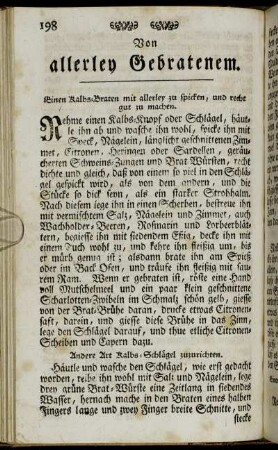 198
Von
allerley Gebratenem.
Einen Kalbs-Braten mit allerley zu spicken, und recht
gut zu machen.
Nehme einen Kalbs-Knopf oder Schlägel, häut-
le ihn ab und wasche ihn wohl, spicke ihn mit
Speck, Nägelein, länglicht geschnittenen Zim-
met, Citronen, Heringen oder Sardellen, geräu-
cherten Schweins-Zungen und Brat-Würsten, recht
dichte und gleich, daß von einem so viel in den Schlä-
gel gespickt wird, als von dem andern, und die
Stücke so dick seyn, als ein starker Strohhalm.
Nach diesem lege ihn in einen Scherben, bestreue ihn
mit vermischtem Salz, Nägelein und Zimmet, auch
Wachholder-Beeren, Rosmarin und Lorbeerblät-
tern, begiesse ihn mit siedendem Essig, decke ihn mit
einem Tuch wohl zu, und kehre ihn fleißig um, bis
er mürb genug ist; alsdann brate ihn am Spieß
oder im Back Ofen, und träufe ihn fleißig mit sau-
rem Ram. Wenn er gebraten ist, röste eine Hand
voll Mutschelmel und ein paar klein geschnittene
Scharlotten-Zwibeln im Schmalz schön gelb, giesse
von der Brat-Brühe daran, drucke etwas Citronen-
saft, darein, und giesse diese Brühe in das Zinn,
lege den Schlägel darauf, und thue etliche Citronen-
Scheiben und Capern dazu.
Andere Art Kalbs-Schlägel zuzurichten.
Häutle und wasche den Schlägel, wie erst gedacht
worden, reibe ihn wohl mit Salz und Nägelein, lege
drey grüne Brat-Würste eine Zeitlang in siedendes
Wasser, hernach mache in den Braten einen halben
Fingers lange und zwey Finger breite Schnitte, und
stecke